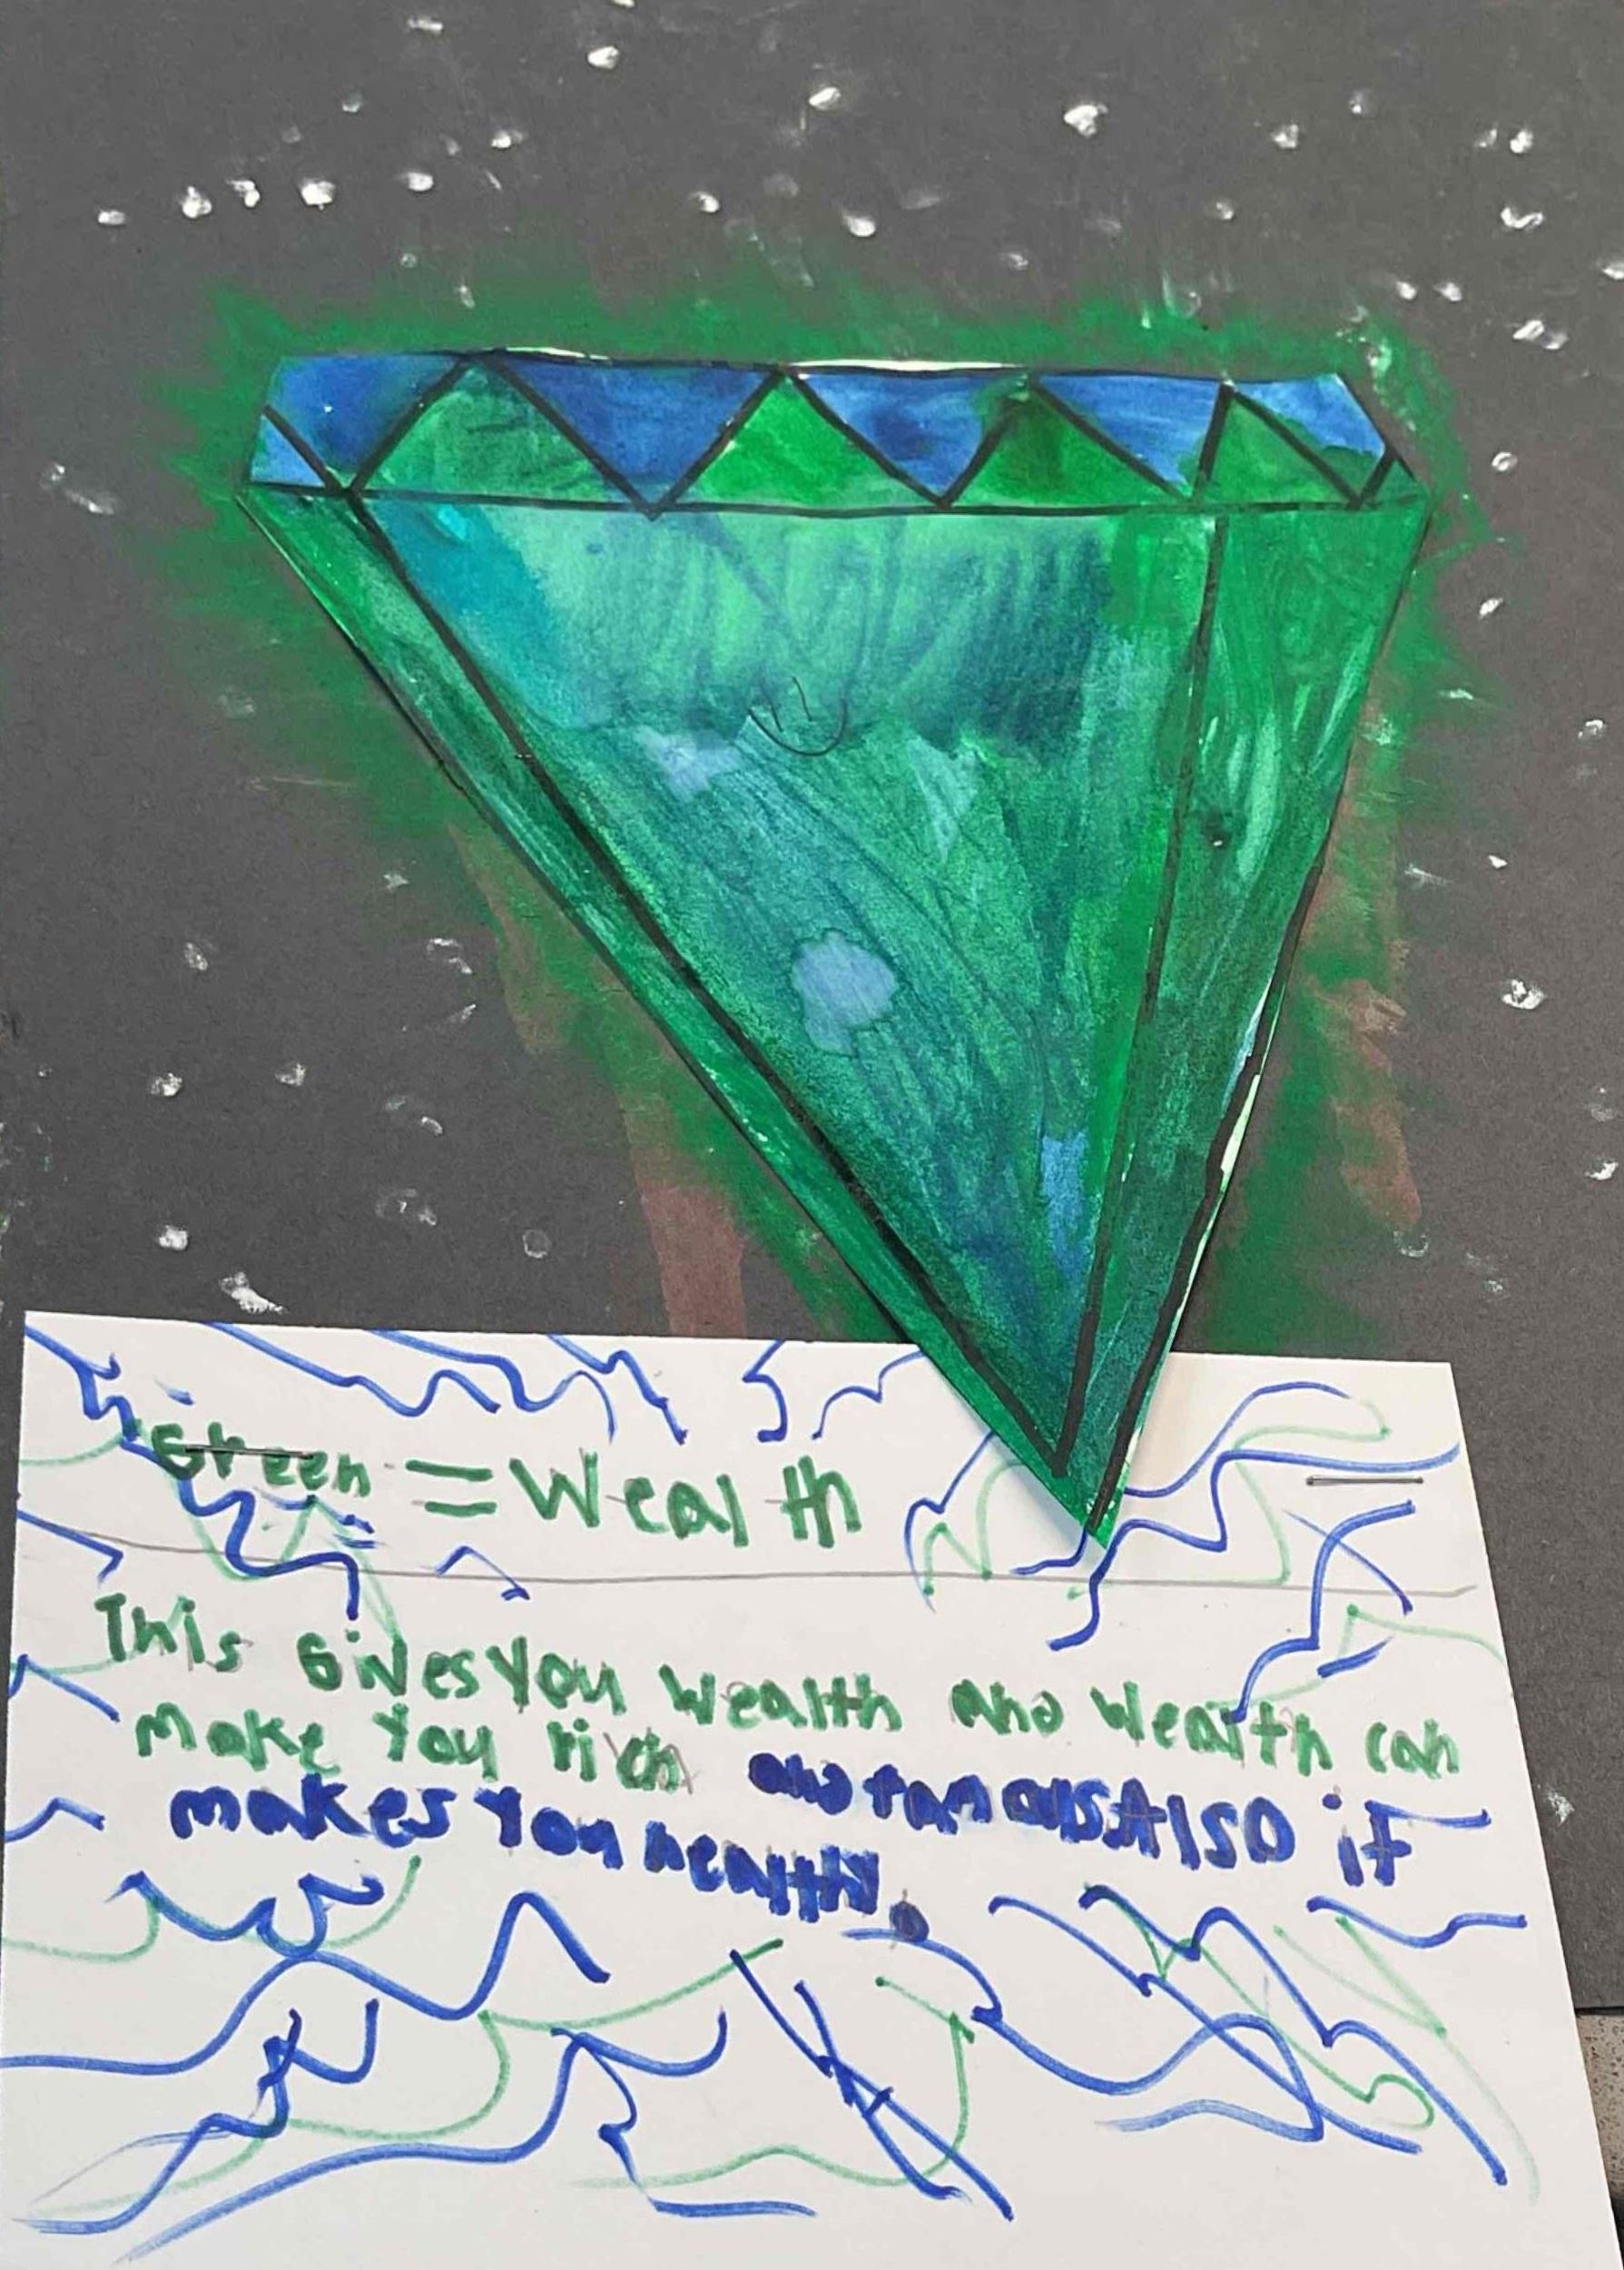 Green = Wealth
This Gives You Wealth and Wealth can
Make You rich and famous Also it
makes You healthy.